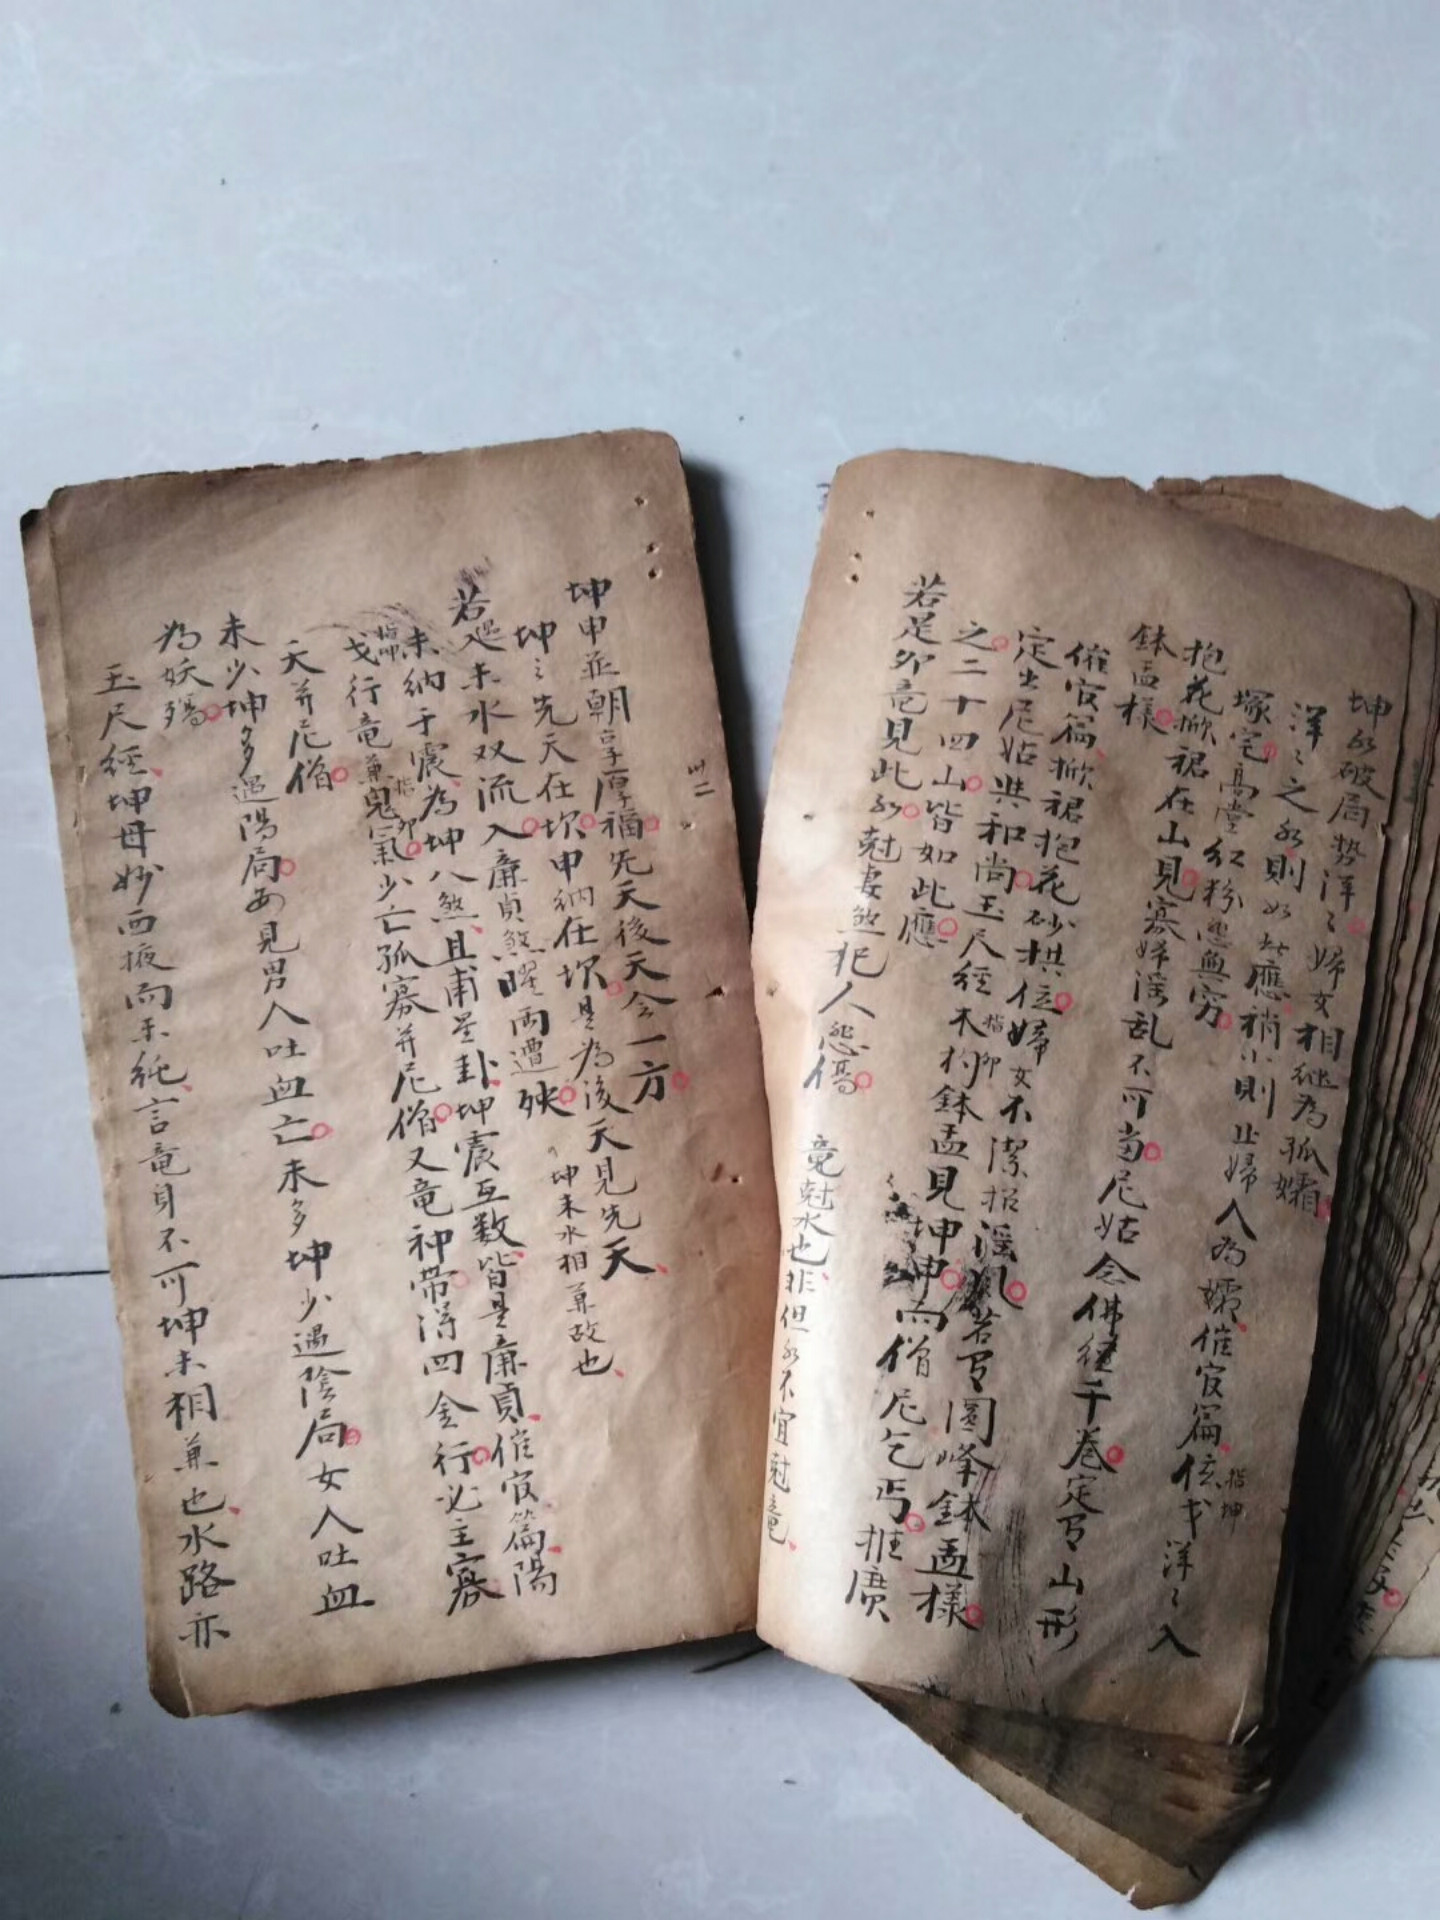 坤水破局势洋〻婦女相継為孤孀
洋〻之水則如此應稍小則止婦人為孀催官篇位弋洋〻入
指坤
塚宅高堂紅粉怨無穷
抱花掀裙在山見寡婦滛乱不可当尼姑念佛経千卷定有山形
鉢盂樣
催官篇掀裙抱花砂拱位婦女不潔招滛風若有圓峰鉢盂樣
指卯
定出尼姑與和尚玉尺經木杓鉢盂見坤坤而僧尼乞丐推廣
之二十四山皆如此應
若是卯竜見此水尅妻煞犯人怨傷
竟尅水也非但水不宜尅竜
卅二
坤申並朝享厚福先天後天会一方
坤〻先天在坎申納在坎是為後天見先天
若遇未水双流入廉貞煞曜両遭殃
坤未水相兼故也
未納于震為坤八煞且甫星卦坤震互数皆是廉貢催官篇陽
指坤
戈行竜兼鬼氣少亡孤寡并尼僧又竜神带得四金行必主寡
指卯
夭并尼僧
未少坤多遇陽局必見男人吐血亡未多坤少遇陰局女人吐血
為妖殤
玉尺經坤母妙西掖而未純言竜身不可坤未相兼也水路亦